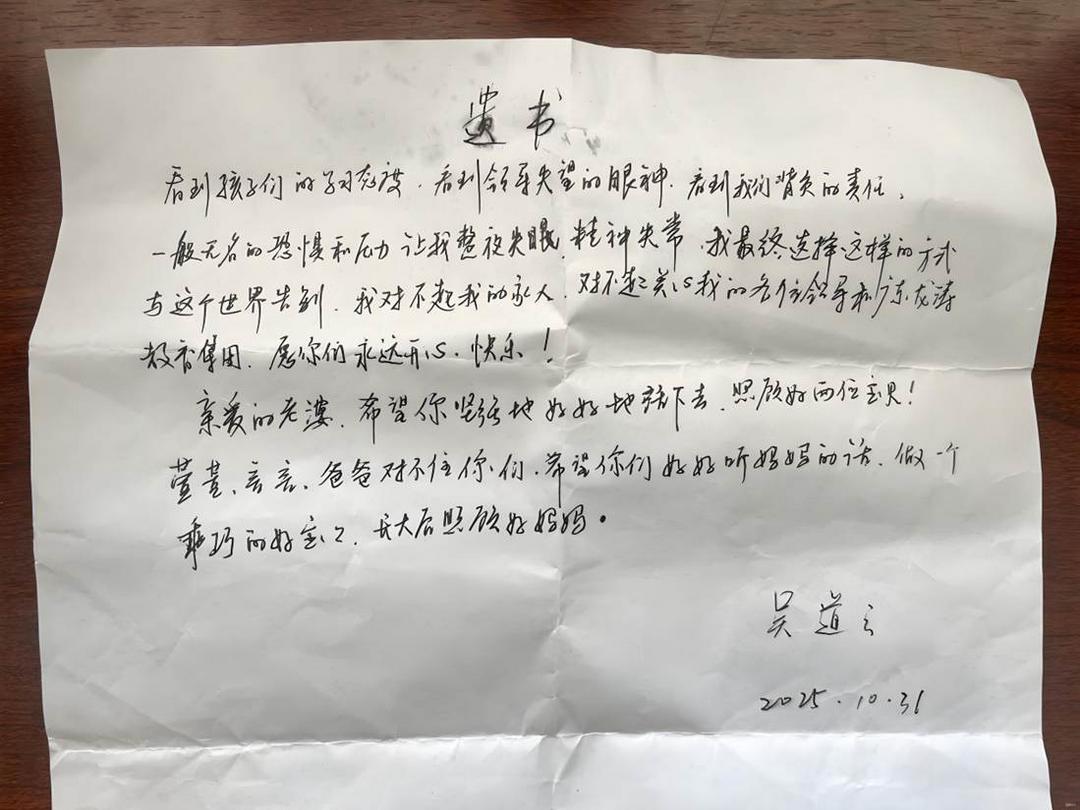 遗书
看到孩子们的学习态度、看到领导失望的眼神、看到我们背负的责任、
一般无名的恐惧和压力让我整夜失眠、精神失常、我最终选择这样的方式
与这个世界告别、我对不起我的家人、对不起关心我的各位领导和龙涛
教育集团、愿你们永远开心、快乐！
亲爱的老婆、希望你坚强地好好地活下去、照顾好两位宝贝！
萱萱、言言、爸爸对不住你们、希望你们好好听妈妈的话、做一个
乖巧的好宝宝、长大后照顾好妈妈。
吴道云
2025.10.31